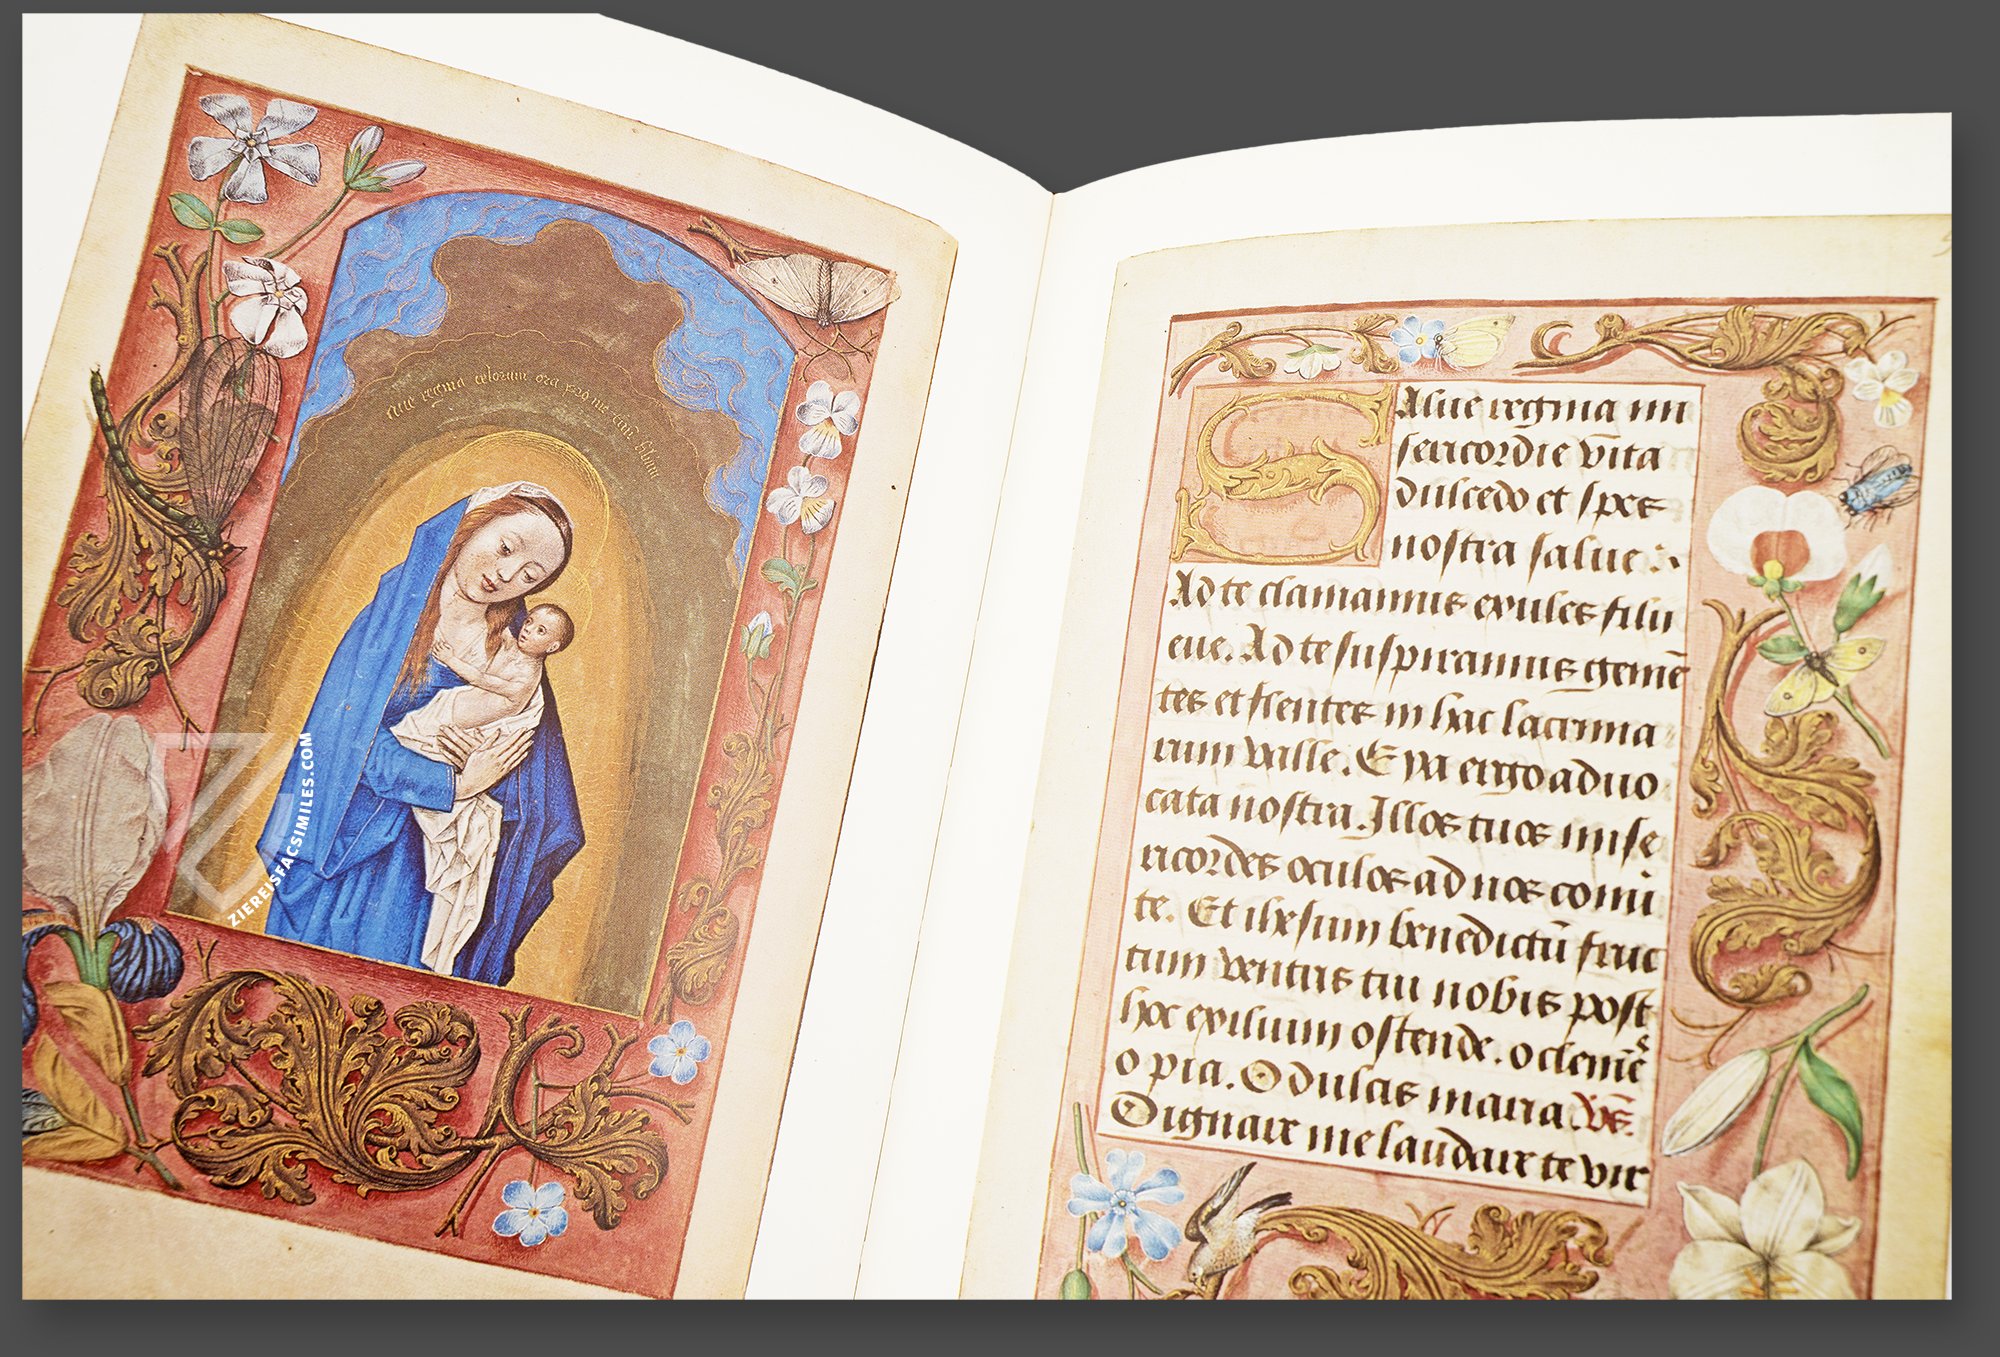 Aue regina celorum ora pro me tuum filium
ZIEREISFACSIMILES.COM
Salue regina mi
sericordie vita
dulcedo et spes
nostra salue:
Ad te clamamus exules filii
eue. Ad te suspiramus gemē
tes et flentes in hac lacrima
rum valle. Eya ergo aduo
cata nostra. Illos tuos mise
ricordes oculos ad nos conu
te. Et ihesum benedictū fruc
tum ventris tui nobis post
hoc exilium ostende. o clemēs
o pia. O dulcis maria. Vs.
Dignare me laudare te vir